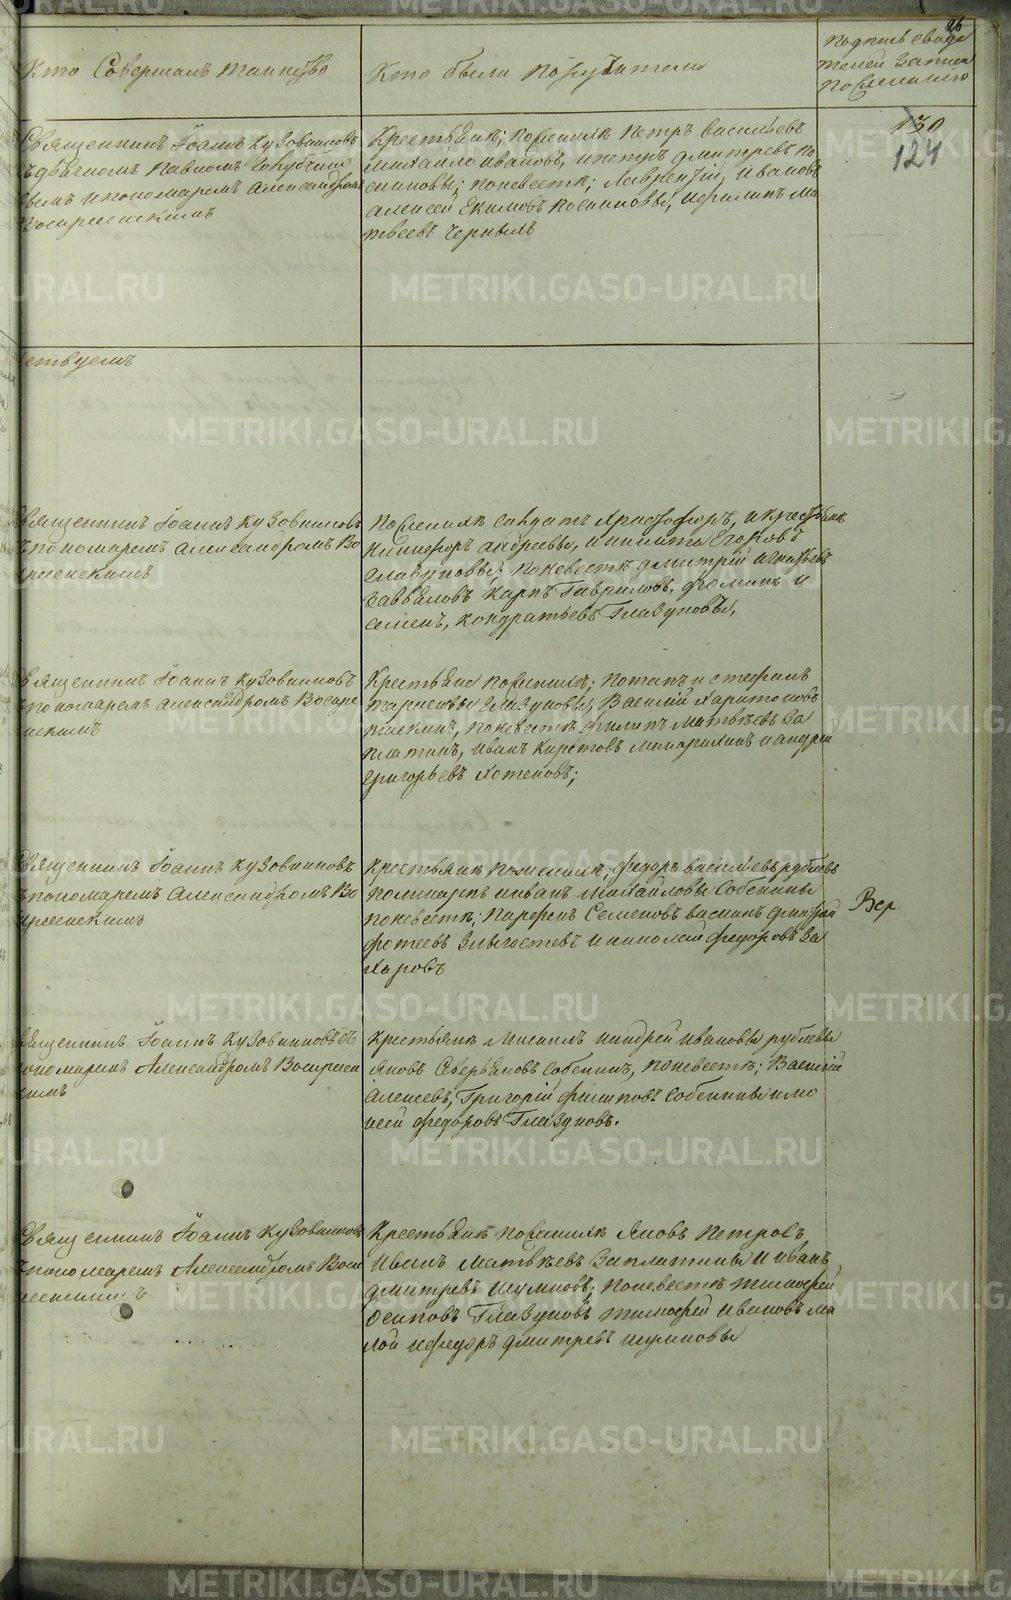 96
Кто Совершалъ таинство
Кто были поручители
подпись свиде
телей записи
по Желанію
130
124
Священникъ Іоаннъ Кузовниковъ
съ дьячкомъ Павломъ
вымъ и пономаремъ Александромъ
Воскресенскимъ
Крестьяне; по женихе Петръ васильевъ
михайло ивановъ, и петръ дмитревъ
по невесте; Лаврентій, Ивановъ
алексей Екимовъ и филипъ ма
твеевъ
етвуемъ
Священникъ Іоаннъ Кузовниковъ
съ пономаремъ Александромъ Во
скресенскимъ
по женихе салдатъ Христофоръ, и крестьяне
Никифоръ андреевы, и никита Егоровъ
Глазуновы; по невесте дмитрій игнатьевъ
Карпъ Гавриловъ, фоминъ и
семенъ, кондратьевъ Глазуновы,
Священникъ Іоаннъ Кузовниковъ
съ пономаремъ Александромъ Воскре
сенскимъ
Крестьяне по женихе; Потапъ и стефанъ
Глазуновы, Василій Харитоновъ
по невесте Филипъ Матвеевъ За
платинъ, иванъ и андрей
григорьевъ Хотеновъ;
Священникъ Іоаннъ Кузовниковъ
съ пономаремъ Александромъ Во
скресенскимъ
Крестьяне по женихе, федоръ васильевъ рублевъ
поликарпъ и иванъ Михайловы Собенины
по невесте; Парфенъ Семеновъ дмитрій
фотеевъ и николай федоровъ За
харовъ
Вер
Священникъ Іоаннъ Кузовниковъ съ
пономаремъ Александромъ Воскресен
скимъ
Крестьяне Михаилъ и андрей ивановы рублевы
Яковъ Северьяновъ Собенинъ, по невесте; Василій
Алексеевъ, Григорій филиповъ Собенины и мо
исей федоровъ Глазуновъ.
Священникъ Іоаннъ Кузовниковъ
съ пономаремъ Александромъ Воск
ресенскимъ
Крестьяне по женихе Яковъ Петровъ,
Иванъ матвеевъ Заплатины и иванъ
дмитревъ Шумковъ; по невесте тимофей
осиповъ Глазуновъ тимофей ивановъ ма
лой и федоръ дмитревъ шумковы
METRIKI.GASO-URAL.RU